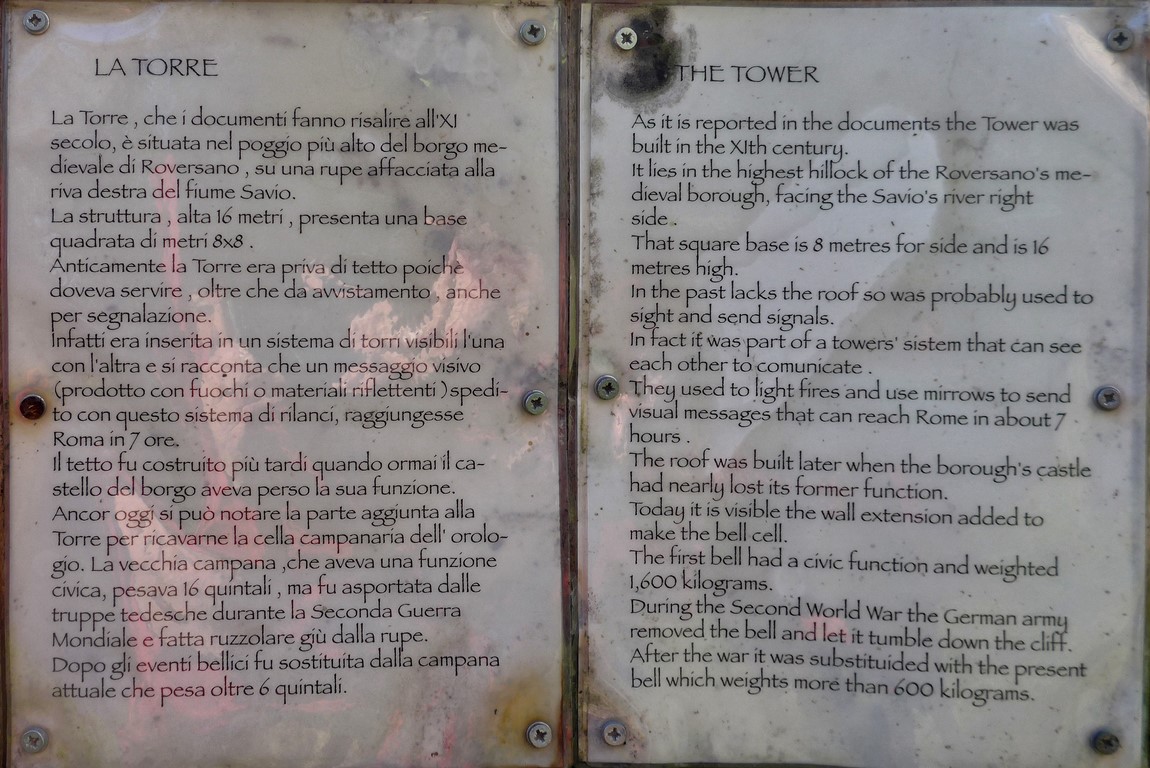 LA TORRE
La Torre , che i documenti fanno risalire all'XI
secolo, è situata nel poggio più alto del borgo me-
dievale di Roversano , su una rupe affacciata alla
riva destra del fiume Savio.
La struttura , alta 16 metri , presenta una base
quadrata di metri 8x8 .
Anticamente la Torre era priva di tetto poichè
doveva servire , oltre che da avvistamento , anche
per segnalazione.
Infatti era inserita in un sistema di torri visibili l'una
con l'altra e si racconta che un messaggio visivo
(prodotto con fuochi o materiali riflettenti ) spedi-
to con questo sistema di rilanci, raggiungesse
Roma in 7 ore.
Il tetto fu costruito più tardi quando ormai il ca-
stello del borgo aveva perso la sua funzione.
Ancor oggi si può notare la parte aggiunta alla
Torre per ricavarne la cella campanaria dell' orolo-
gio. La vecchia campana ,che aveva una funzione
civica, pesava 16 quintali , ma fu asportata dalle
truppe tedesche durante la Seconda Guerra
Mondiale e fatta ruzzolare giù dalla rupe.
Dopo gli eventi bellici fu sostituita dalla campana
attuale che pesa oltre 6 quintali.
THE TOWER
As it is reported in the documents the Tower was
built in the XIth century.
It lies in the highest hillock of the Roversano's me-
dieval borough, facing the Savio's river right
side .
That square base is 8 metres for side and is 16
metres high.
In the past lacks the roof so was probably used to
sight and send signals.
In fact it was part of a towers' sistem that can see
each other to comunicate .
They used to light fires and use mirrows to send
visual messages that can reach Rome in about 7
hours .
The roof was built later when the borough's castle
had nearly lost its former function.
Today it is visible the wall extension added to
make the bell cell.
The first bell had a civic function and weighted
1,600 kilograms.
During the Second World War the German army
removed the bell and let it tumble down the cliff.
After the war it was substituided with the present
bell which weights more than 600 kilograms.